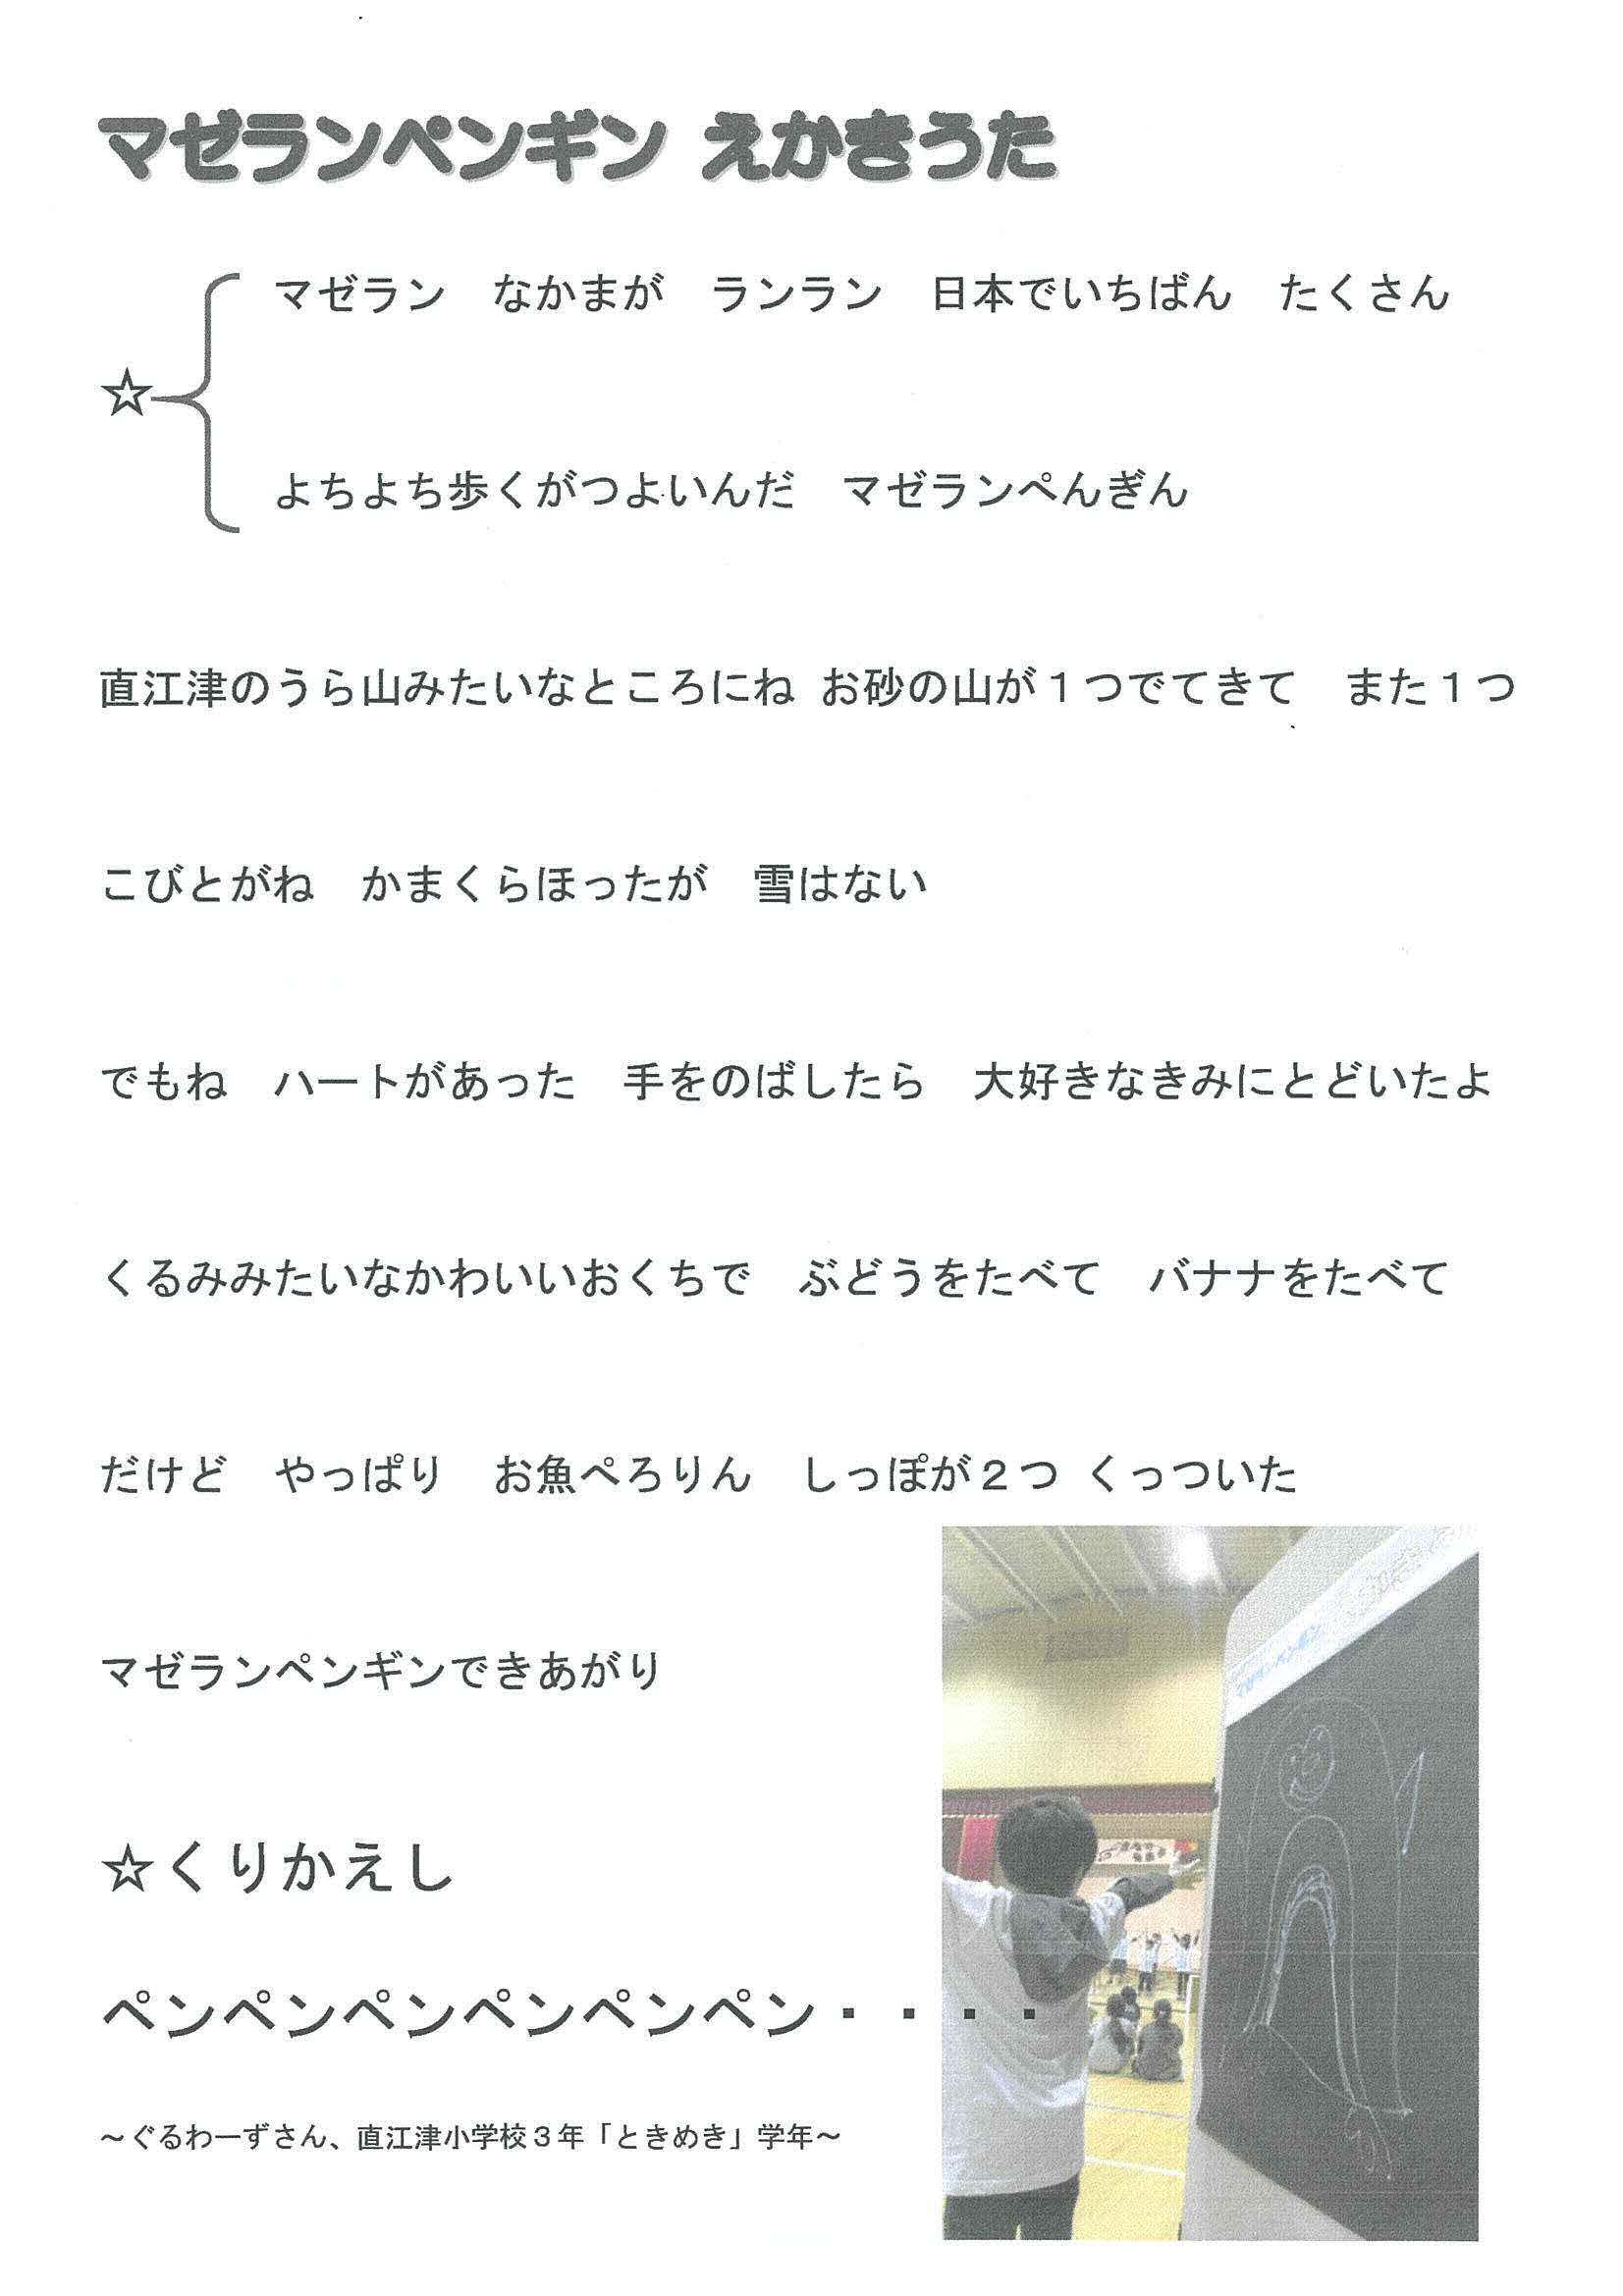 マゼランペンギン えかきうた
マゼラン　なかまが　ランラン　日本でいちばん　たくさん
☆
よちよち歩くがつよいんだ　マゼランぺんぎん
直江津のうら山みたいなところにね お砂の山が１つでてきて　また１つ
こびとがね　かまくらほったが　雪はない
でもね　ハートがあった　手をのばしたら　大好きなきみにとどいたよ
くるみみたいなかわいいおくちで　ぶどうをたべて　バナナをたべて
だけど　やっぱり　お魚ぺろりん　しっぽが２つ くっついた
マゼランペンギンできあがり
☆くりかえし
ペンペンペンペンペンペン・・・・
～ぐるわーずさん、直江津小学校３年「ときめき」学年～